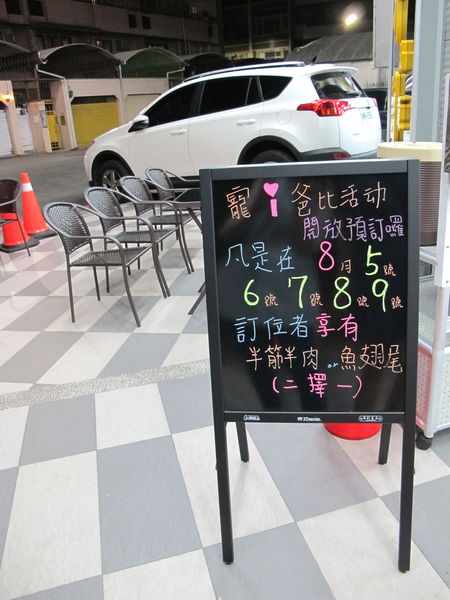 寵i爸比活动
開放預訂囉
凡是在8月5號
6號7號8號9號
訂位者享有
半筋半肉or魚翅尾
(二擇一)